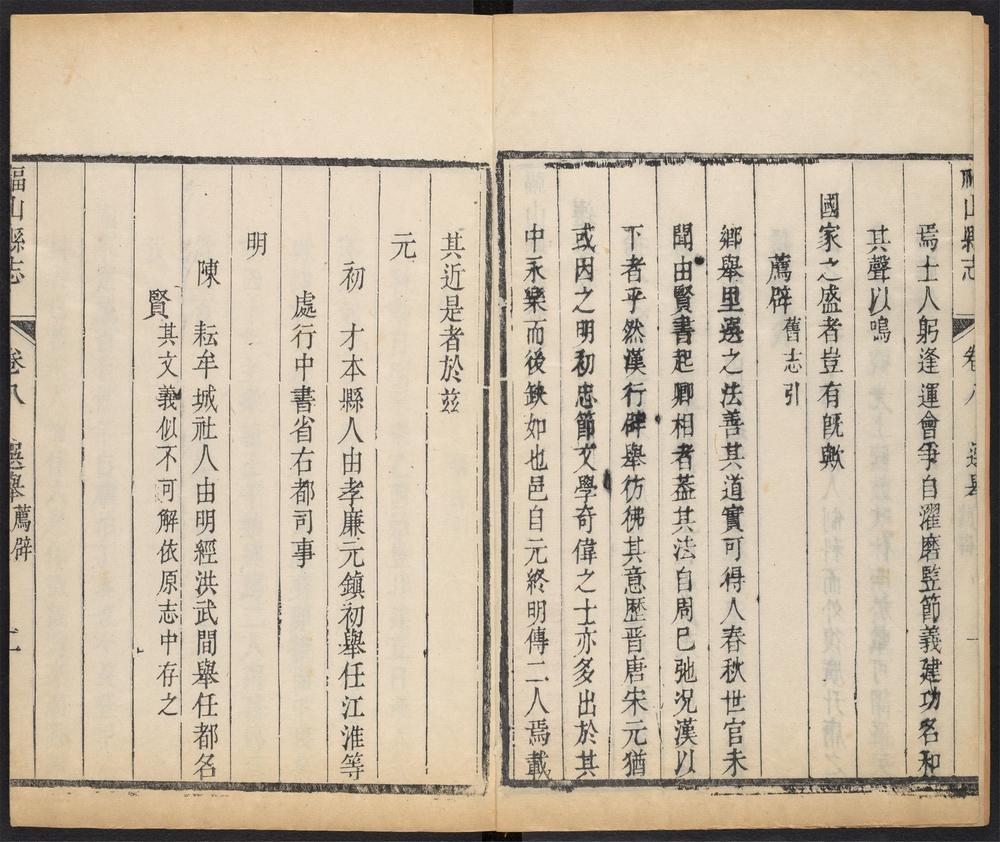 山縣志
卷八
選舉
一
焉士人躬逢運會爭自濯磨竪節義建功名和
其聲以鳴
國家之盛者豈有旣歟
薦辟舊志引
鄉舉里選之法善其道實可得人春秋世官未
聞由賢書起卿相者葢其法自周已弛况漢以
下者乎然漢行辟舉彷彿其意歷晉唐宋元猶
或因之明初忠節文學奇偉之士亦多出於其
中永樂而後缺如也邑自元終明傳二人焉載
其近是者於兹
元
初才本縣人由孝廉元鎮初舉任江淮等
處行中書省右都司事
明
陳耘牟城社人由明經洪武間舉任都名
賢其文義似不可解依原志中存之
福山縣志
卷八
選舉薦辟